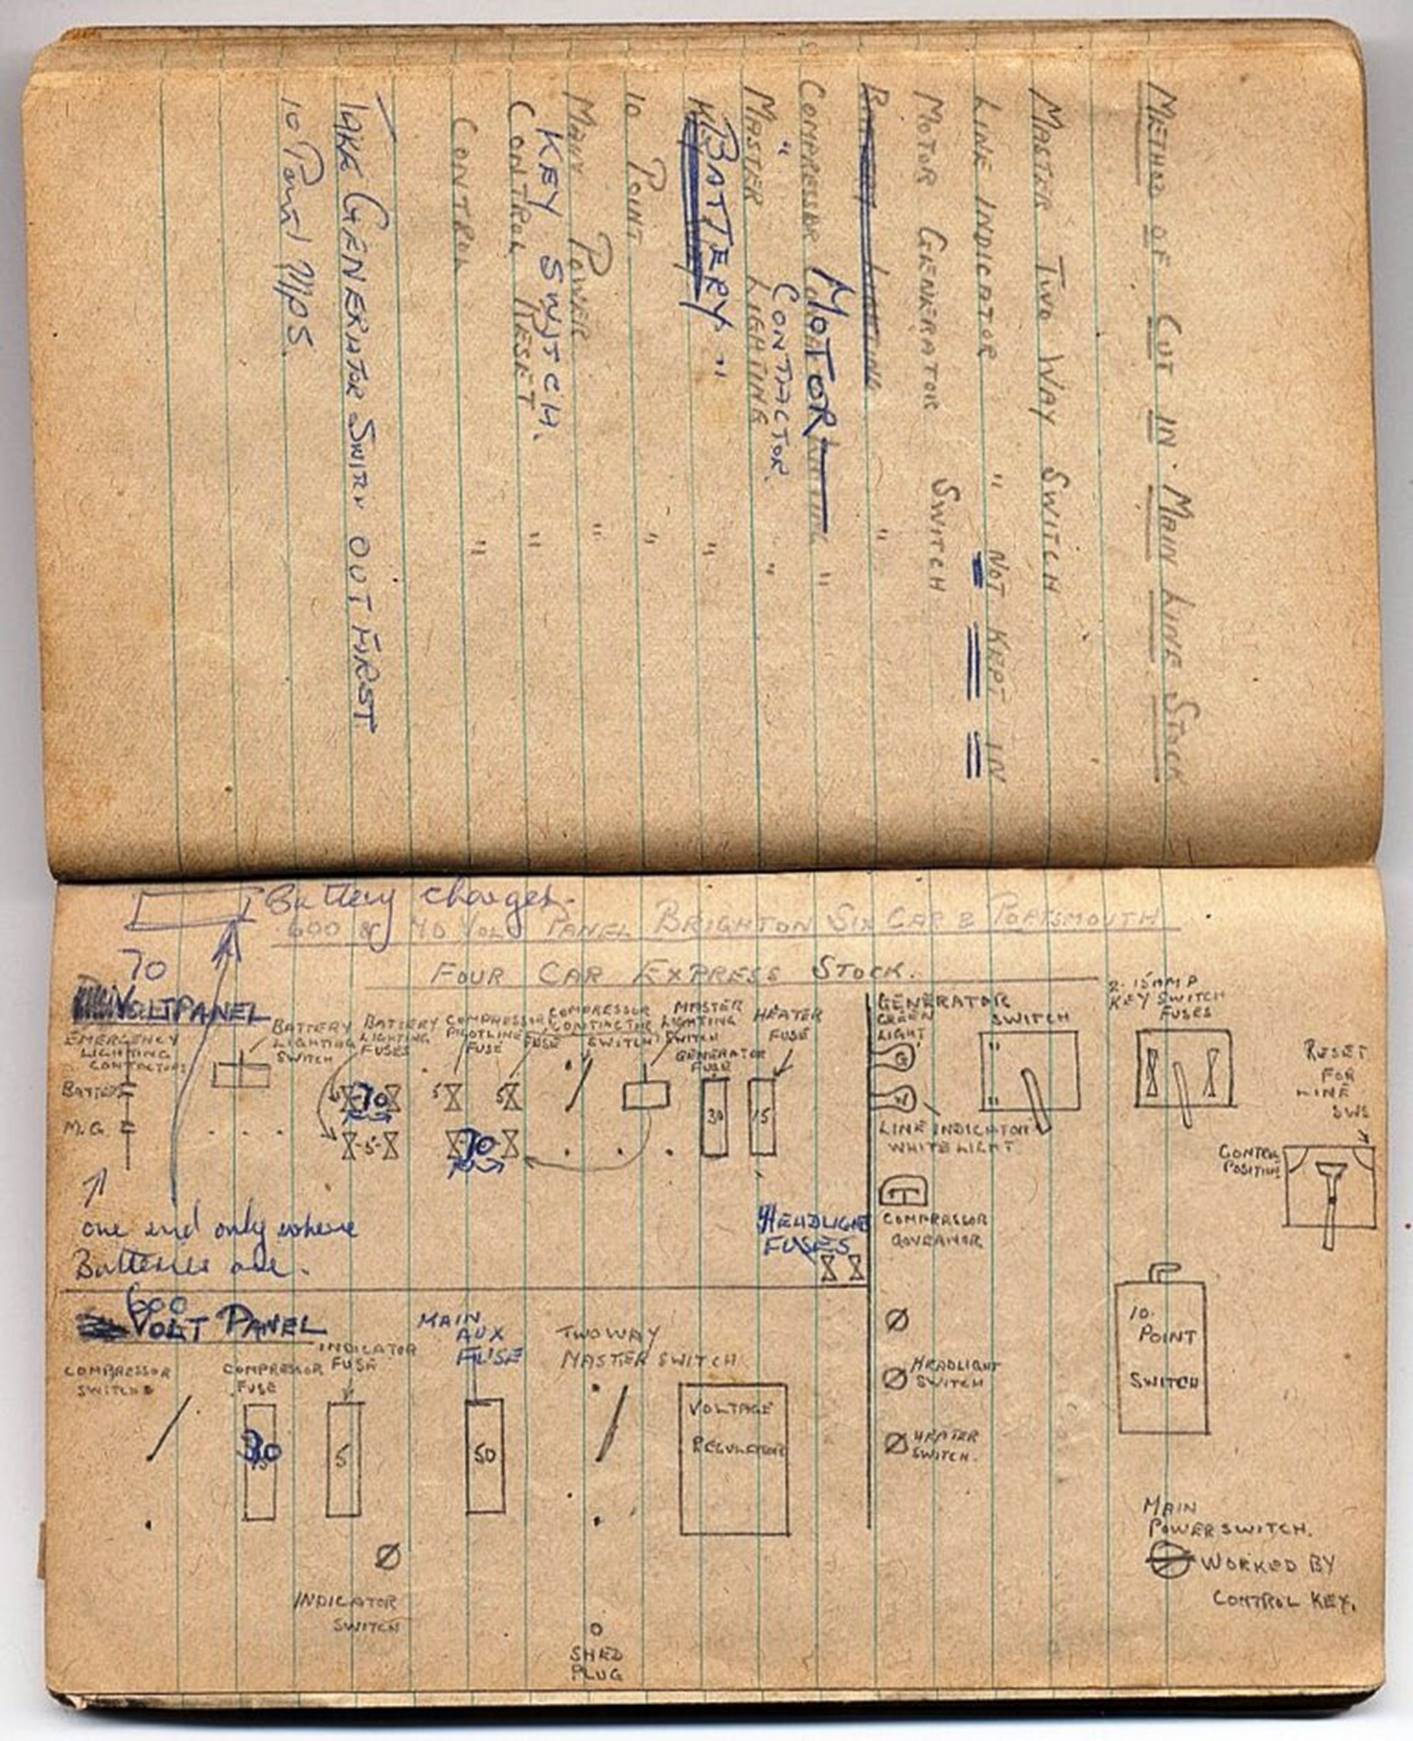 METHOD OF CUT IN. MAIN LINE STOCK
MASTER TWO WAY SWITCH
LINE INDICATOR " NOT KEPT IN
MOTOR GENERATOR SWITCH
BATTERY LIGHTING "
COMPRESSOR MOTOR "
" CONTACTOR
MASTER LIGHTING "
BATTERY " "
10 POINT "
MAIN POWER "
KEY SWITCH.
CONTROL RESET "
CONTROL "
TAKE GENERATOR SWITCH OUT FIRST
10 Point MPS
Battery charger.
600 & 70 VOLT PANEL BRIGHTON SIX CAR & PORTSMOUTH
FOUR CAR EXPRESS STOCK.
70
VOLT PANEL
EMERGENCY
LIGHTING
CONTACTORS
BATTERY
M.G.
BATTERY
LIGHTING
SWITCH
BATTERY
LIGHTING
FUSES
COMPRESSOR
PILOTLINE
FUSE
COMPRESSOR
CONTACTOR
FUSE SWITCH
MASTER
LIGHTING
SWITCH
GENERATOR
FUSE
HEATER
FUSE
70
5
5
30
15
-5-
70
one end only where
Batteries are.
HEADLIGHT
FUSES
GENERATOR
GREEN
LIGHT
SWITCH
G
W
LINE INDICATOR
WHITE LIGHT
COMPRESSOR
GOVERNOR
HEADLIGHT
SWITCH
HEATER
SWITCH.
2-15 AMP
KEY SWITCH
FUSES
RESET
FOR
LINE
SWS
CONTROL
POSITION
10.
POINT
SWITCH
MAIN
POWER SWITCH.
WORKED BY
CONTROL KEY.
600
VOLT PANEL
COMPRESSOR
SWITCH
COMPRESSOR
FUSE
30
INDICATOR
FUSE
5
MAIN
AUX
FUSE
50
TWO WAY
MASTER SWITCH
VOLTAGE
REGULATOR
INDICATOR
SWITCH
SHED
PLUG